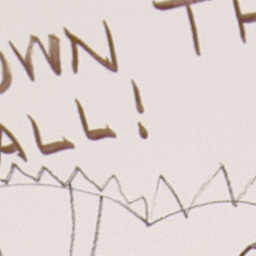 OWN TH
ALL!